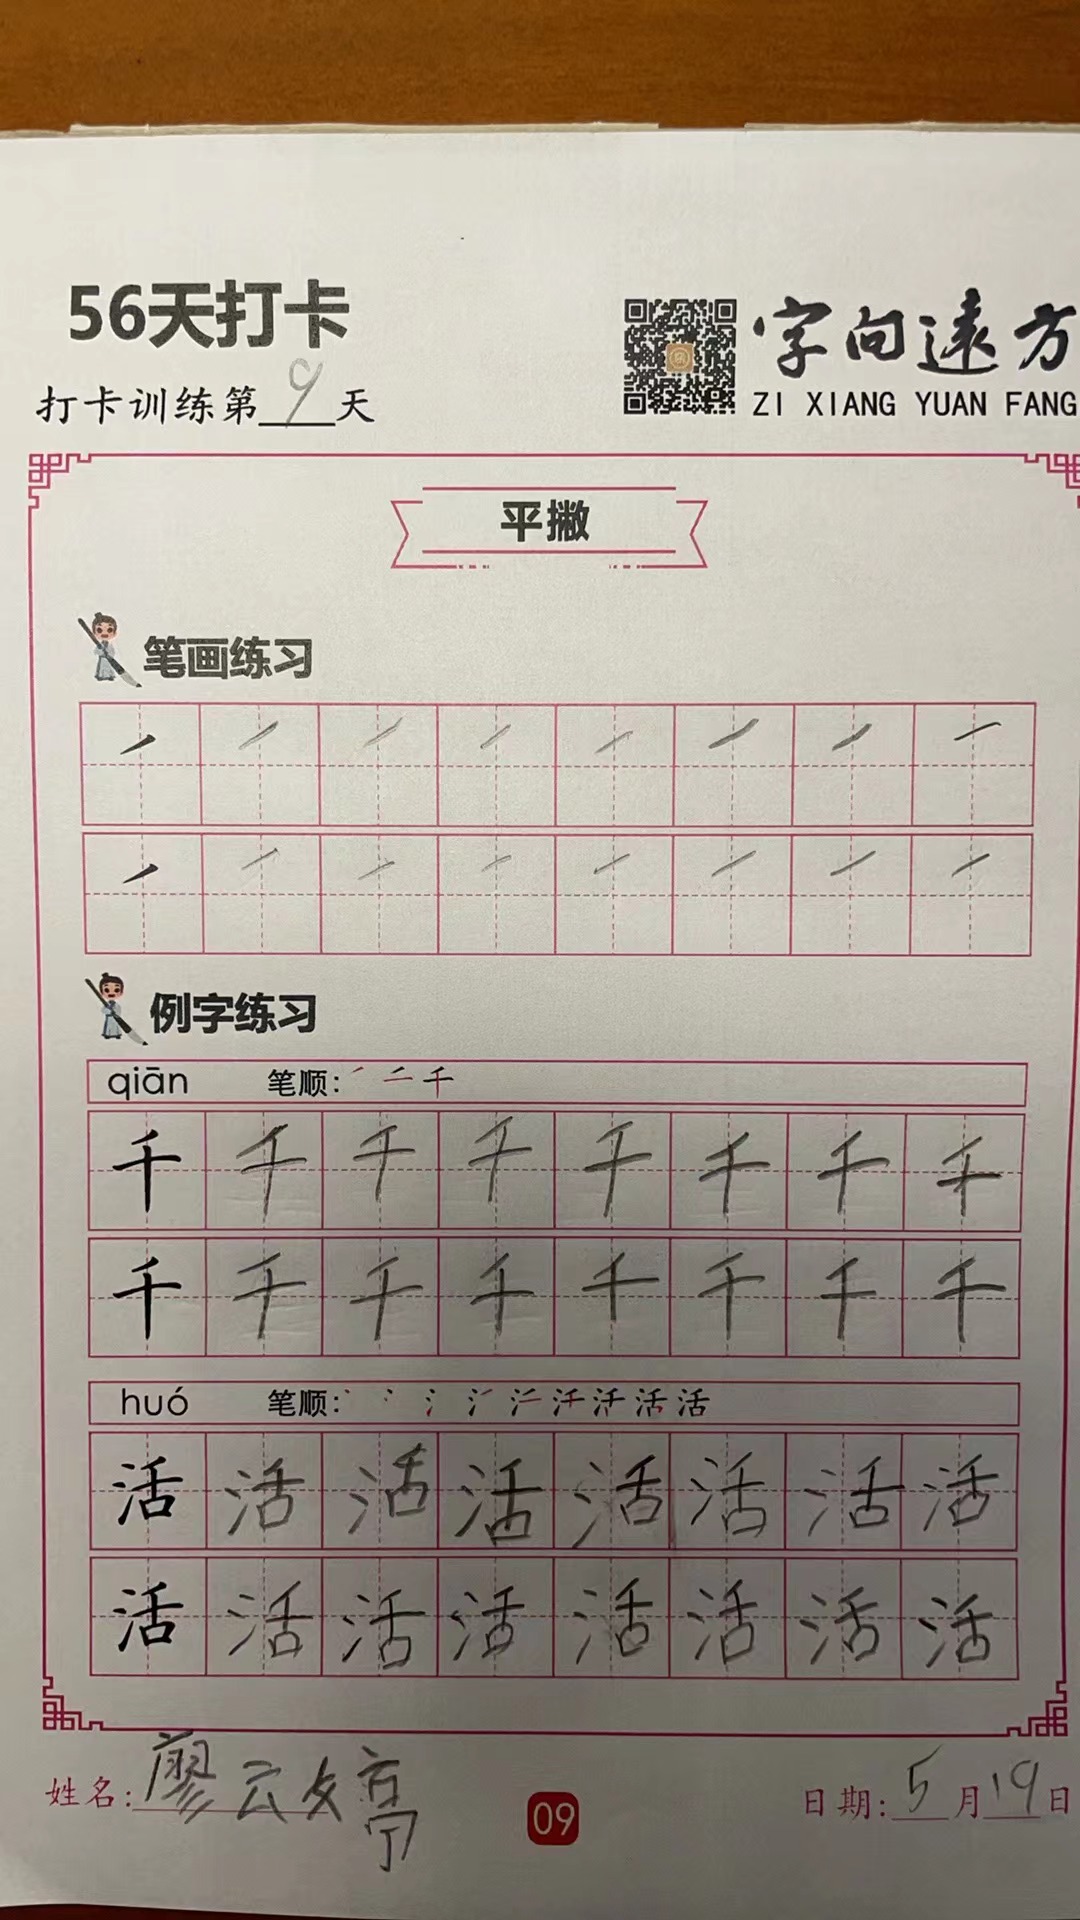 56天打卡
打卡训练第9天
字向遠方
ZI XIANG YUAN FANG
平撇
笔画练习
例字练习
qiān 笔顺:
千 千 千 千 千 千 千 千
千 千 千 千 千 千 千 千
huó 笔顺:
活 活 活 活 活 活 活 活
活 活 活 活 活 活 活 活
姓名:廖云婷
09
日期:5月19日